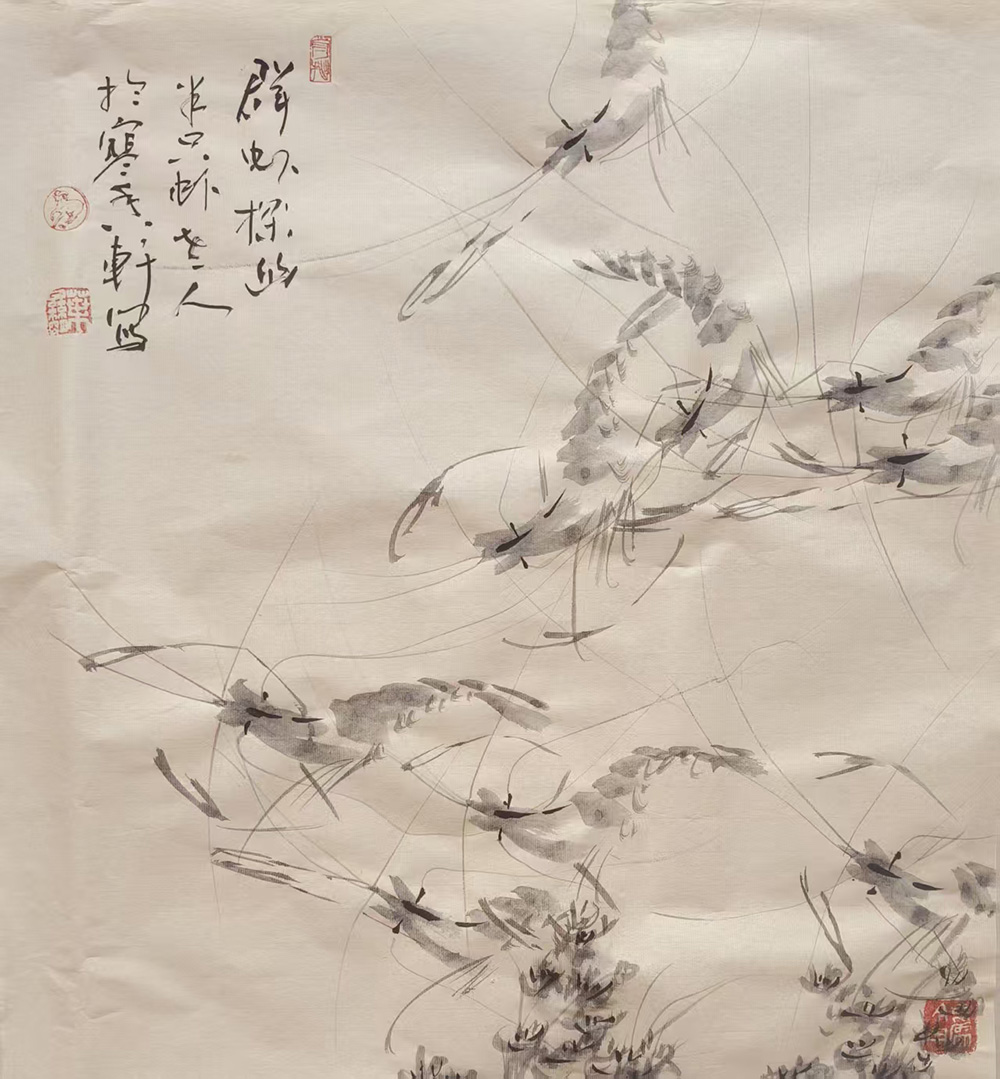 群虾探幽
半只虾老人
於寒香軒写